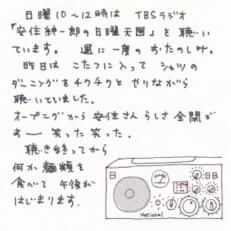 日曜10〜12時は TBSラジオ
「安住紳一郎の日曜天国」を聴い
ています。 週に一度のおたのしみ。
昨日は こたつに入って シャツの
ダーニングをチクチクと やりながら
聴いていました。
オープニングから安住さんらしさ全開で
すー 笑った笑った。
聴き終ってから
何か麺類を
食べて 午後が
はじまります.
National